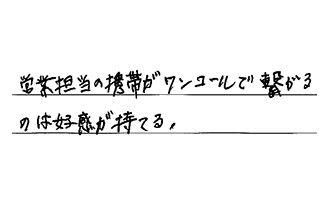 営業担当の携帯がワンコールで繋がる
のは好感が持てる。